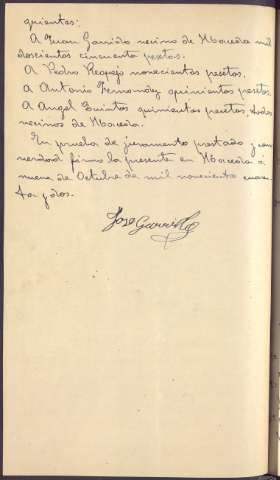 quientas:
A Juan Garrido vecino de Maceda mil
doscientas cincuenta pesetas.
A Pedro novecientas pesetas.
A Antonio Fernandez quinientas pesetas.
A Angel Quintas quinientas pesetas, todos
vecinos de Maceda.
En prueba de juramento prestado y
firmo la presente en Maceda a
nueve de Octubre de mil novecientos cuaren-
ta y dos.
Jose Garrido